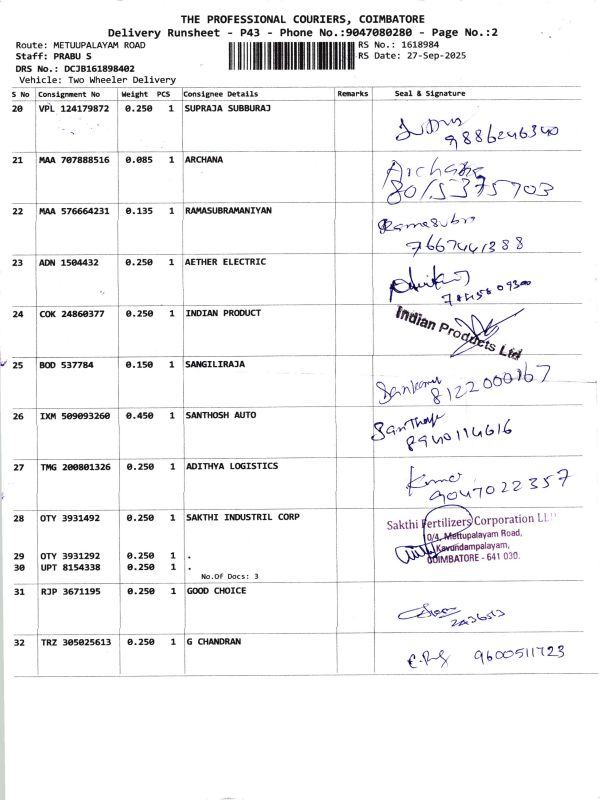 THE PROFESSIONAL COURIERS, COIMBATORE
Delivery Runsheet - P43 - Phone No.:9047080280 - Page No.:2
Route: METUUPALAYAM ROAD RS No.: 1618984
Staff: PRABU S RS Date: 27-Sep-2025
DRS No.: DCJB161898402
Vehicle: Two Wheeler Delivery
S No Consignment No Weight PCS Consignee Details Remarks Seal & Signature
20 VPL 124179872 0.250 1 SUPRAJA SUBBURAJ
9886246340
21 MAA 707888516 0.085 1 ARCHANA
Archana
8015375703
22 MAA 576664231 0.135 1 RAMASUBRAMANIYAN
Ramasubra
7667441388
23 ADN 1504432 0.250 1 AETHER ELECTRIC
24 COK 24860377 0.250 1 INDIAN PRODUCT
Indian Products Ltd
25 BOD 537784 0.150 1 SANGILIRAJA
8122000167
26 IXM 509093260 0.450 1 SANTHOSH AUTO
Santhosh
8940114616
27 TMG 200801326 0.250 1 ADITHYA LOGISTICS
Kumar
9047022357
28 OTY 3931492 0.250 1 SAKTHI INDUSTRIL CORP
Sakthi Fertilizers Corporation LLP
10/4, Mettupalayam Road,
Kavundampalayam,
COIMBATORE - 641 030.
29 OTY 3931292 0.250 1 .
30 UPT 8154338 0.250 1 .
No.Of Docs: 3
31 RJP 3671195 0.250 1 GOOD CHOICE
32 TRZ 305025613 0.250 1 G CHANDRAN
9600511723